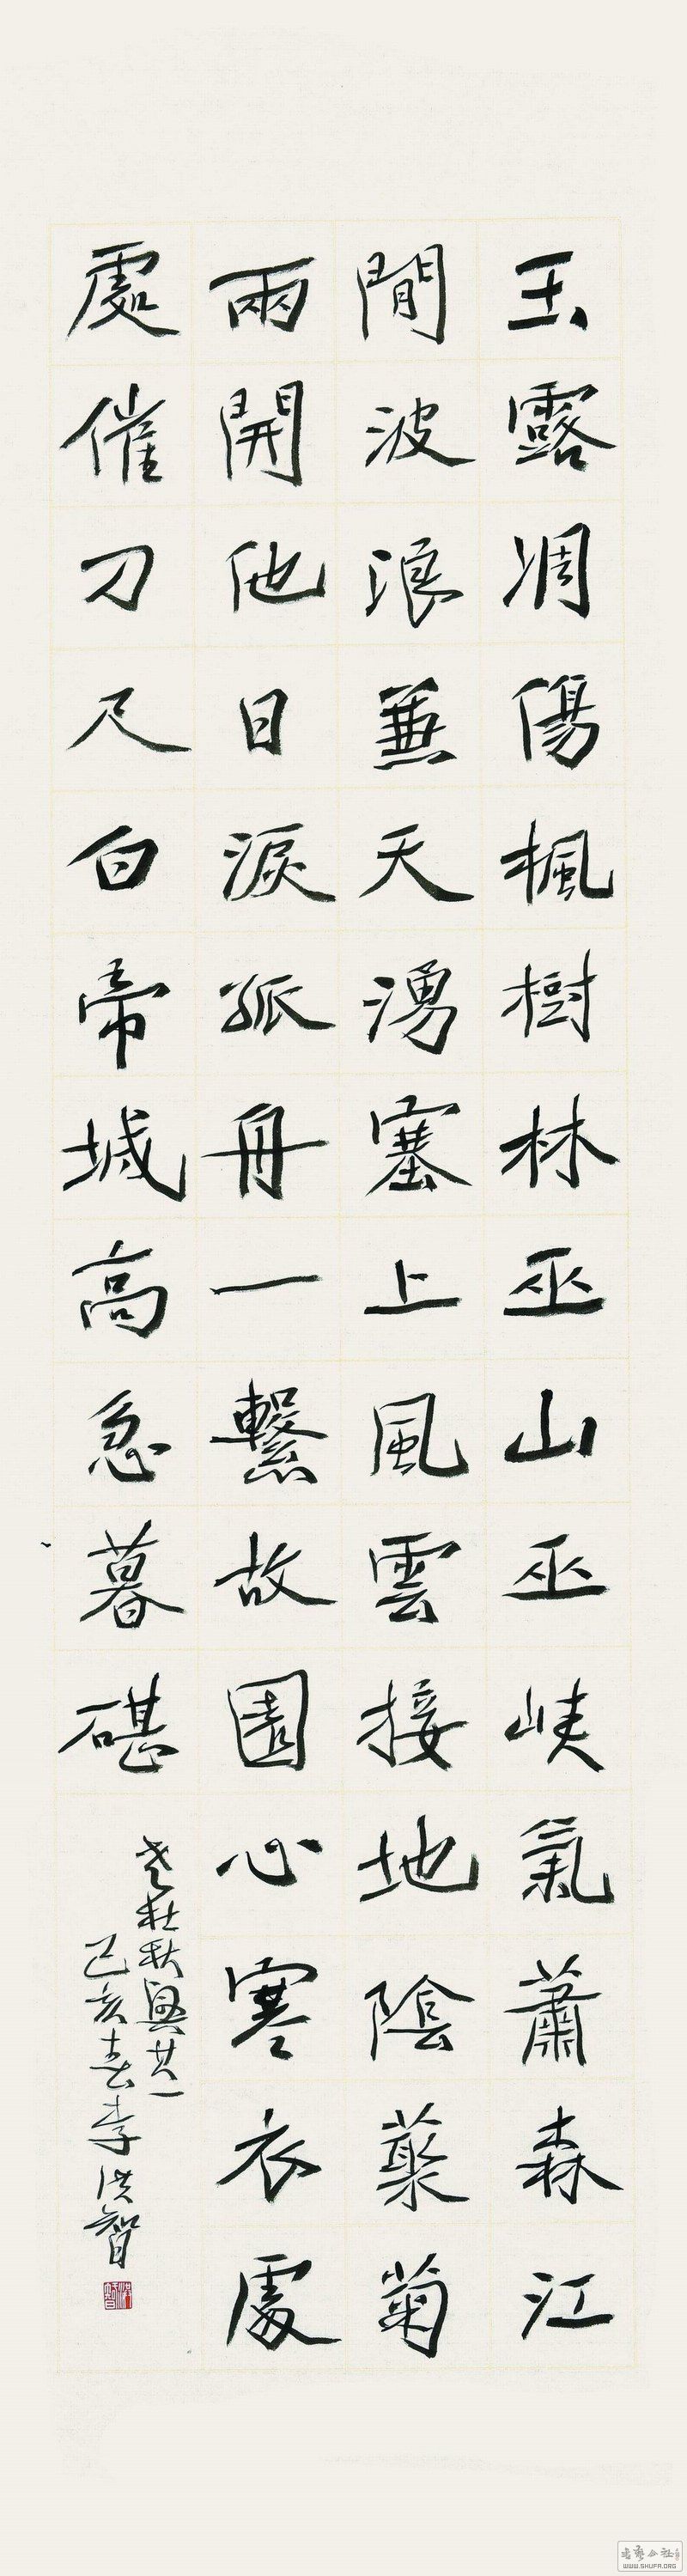 玉露凋傷楓樹林巫山巫峽氣蕭森江
間波浪兼天湧塞上風雲接地陰藂菊
兩開他日淚孤舟一繫故園心寒衣處
處催刀尺白帝城高急暮碪
老杜秋興其一
己亥春李洪智
洪智
WWW.SHUFA.ORG